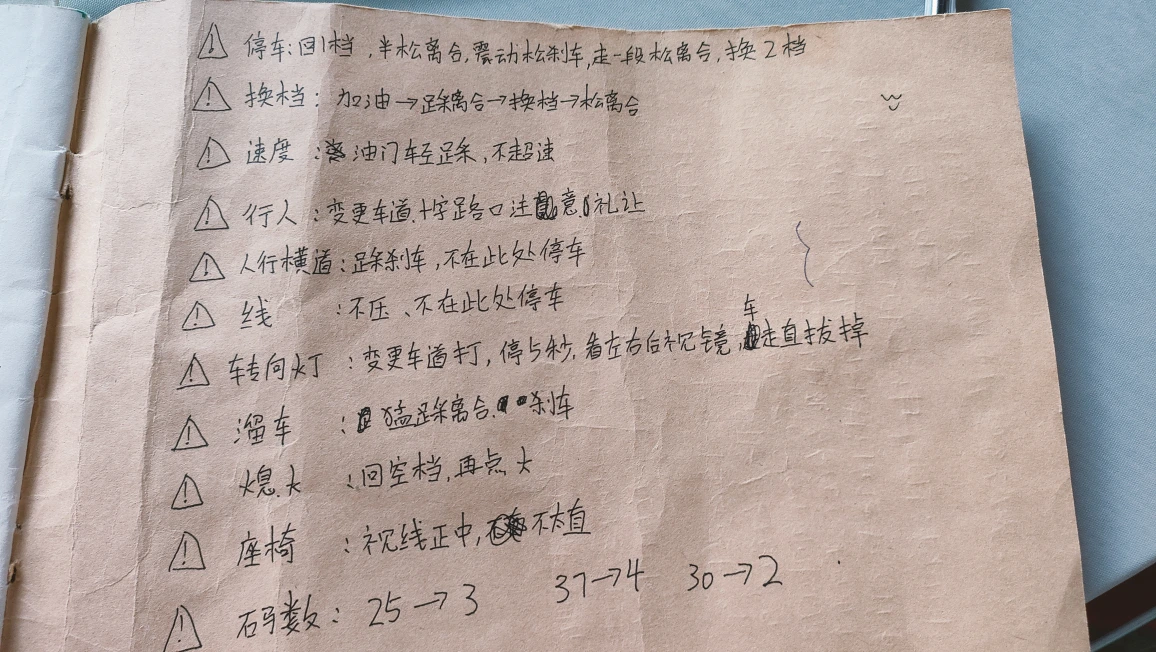 停车:回1档,半松离合,震动松刹车,走一段松离合,换2档
换档:加油→踩离合→换档→松离合
速度:油门轻踩,不超速
行人:变更车道.十字路口注意礼让
人行横道:踩刹车,不在此处停车
线:不压、不在此处停车
车转向灯:变更车道打,停5秒,看左右后视镜,车走直拔掉
溜车:猛踩离合.刹车
熄火:回空档,再点火
座椅:视线正中,不太直
码数:25→3 37→4 30→2